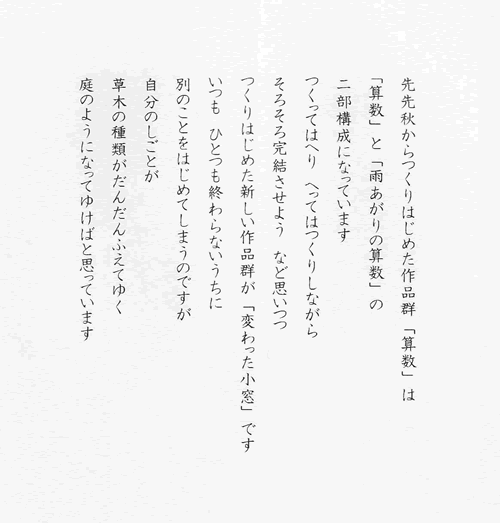 先先秋からつくりはじめた作品群「算数」は
「算数」と「雨あがりの算数」の
二部構成になっています
つくってはへり　へってはつくりしながら
そろそろ完結させよう　など思いつつ
つくりはじめた新しい作品群が「変わった小窓」です
いつも　ひとつも終わらないうちに
別のことをはじめてしまうのですが
自分のしごとが
草木の種類がだんだんふえてゆく
庭のようになってゆけばと思っています